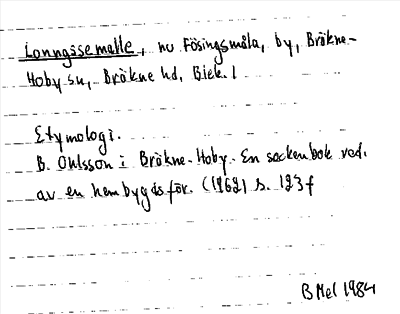 Lonngåsemålle, nu Fösingsmåla, by, Bräkne-
Hoby sn, Bräkne hd, Blek. l
Etymologi.
B. Ohlsson i Bräkne-Hoby. En sockenbok red.
av en hembygdsför. (1962) s. 123 f
B Mel 1984